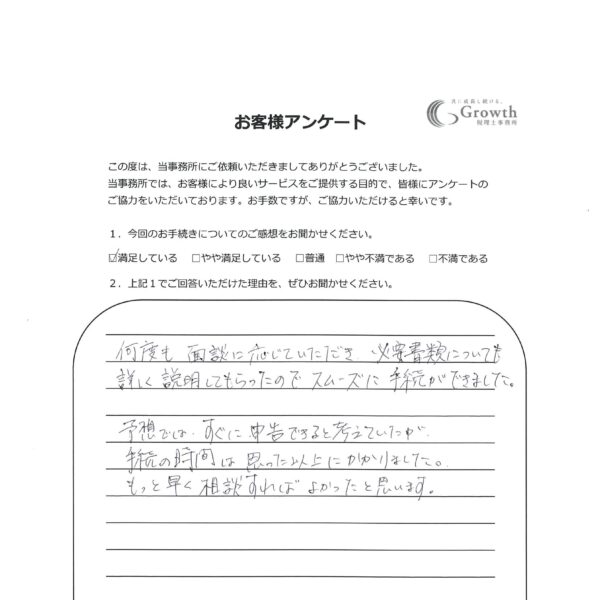 共に成長し続ける。
Growth
税理士事務所
お客様アンケート
この度は、当事務所にご依頼いただきましてありがとうございました。
当事務所では、お客様により良いサービスをご提供する目的で、皆様にアンケートの
ご協力をいただいております。お手数ですが、ご協力いただけると幸いです。
1．今回のお手続きについてのご感想をお聞かせください。
☑満足している □やや満足している □普通 □やや不満である □不満である
2．上記1でご回答いただけた理由を、ぜひお聞かせください。
何度も 面談に応じていただき、必要書類についても
詳しく 説明してもらったので スムーズに 手続ができました。
予想では、すぐに 申告できると考えていたが、
手続の時間は 思った以上にかかりました。
もっと早く 相談すれば よかったと思います。